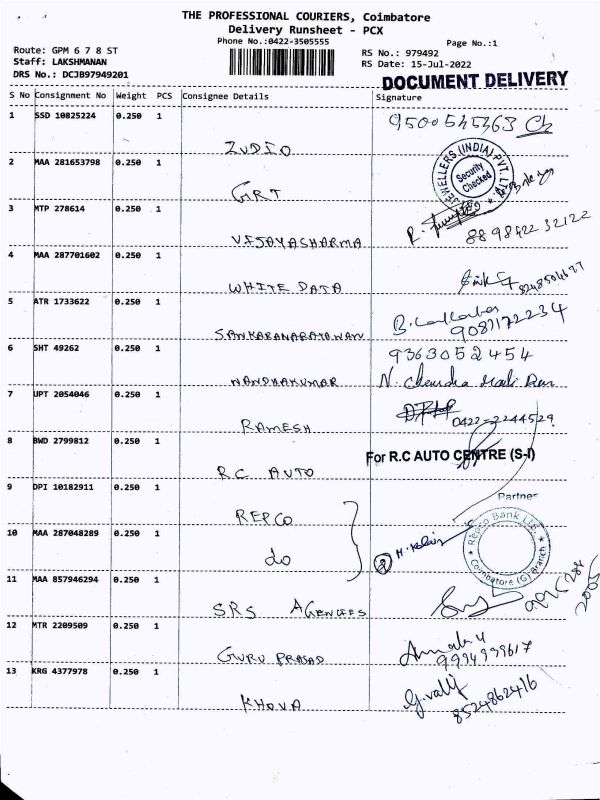 THE PROFESSIONAL COURIERS, Coimbatore
Delivery Runsheet - PCX
Phone No.:0422-3505555
Page No.:1
Route: GPM 6 7 8 ST
RS No.: 979492
Staff: LAKSHMANAN
RS Date: 15-Jul-2022
DRS No.: DCJB97949201
DOCUMENT DELIVERY
S No Consignment No Weight PCS Consignee Details Signature
1 SSD 10825224 0.250 1
ZUDIO
2 MAA 281653798 0.250 1
JEWELLERS (INDIA) PVT. LTD
Security Checked
GRT
3 MTP 278614 0.250 1
VIJAYASHARMA
4 MAA 287701602 0.250 1
WHITE DATA
5 ATR 1733622 0.250 1
SANKARANARAYANAN 9087172234
6 SHT 49262 0.250 1 9363052454
NANDHAKUMAR
7 UPT 2054046 0.250 1
RAMESH 0422-2244529
8 BWD 2799812 0.250 1
For R.C AUTO CENTRE (S-I)
RC AUTO
9 DPI 10182911 0.250 1
Partner
REPCO
10 MAA 287048289 0.250 1
Repco Bank Ltd.
Coimbatore (G) Branch
do
11 MAA 857946294 0.250 1
SRS AGENCIES
12 MTR 2209509 0.250 1
GURU PRASAD 9994939617
13 KRG 4377978 0.250 1
G. Valli
KHOVA 8524862416